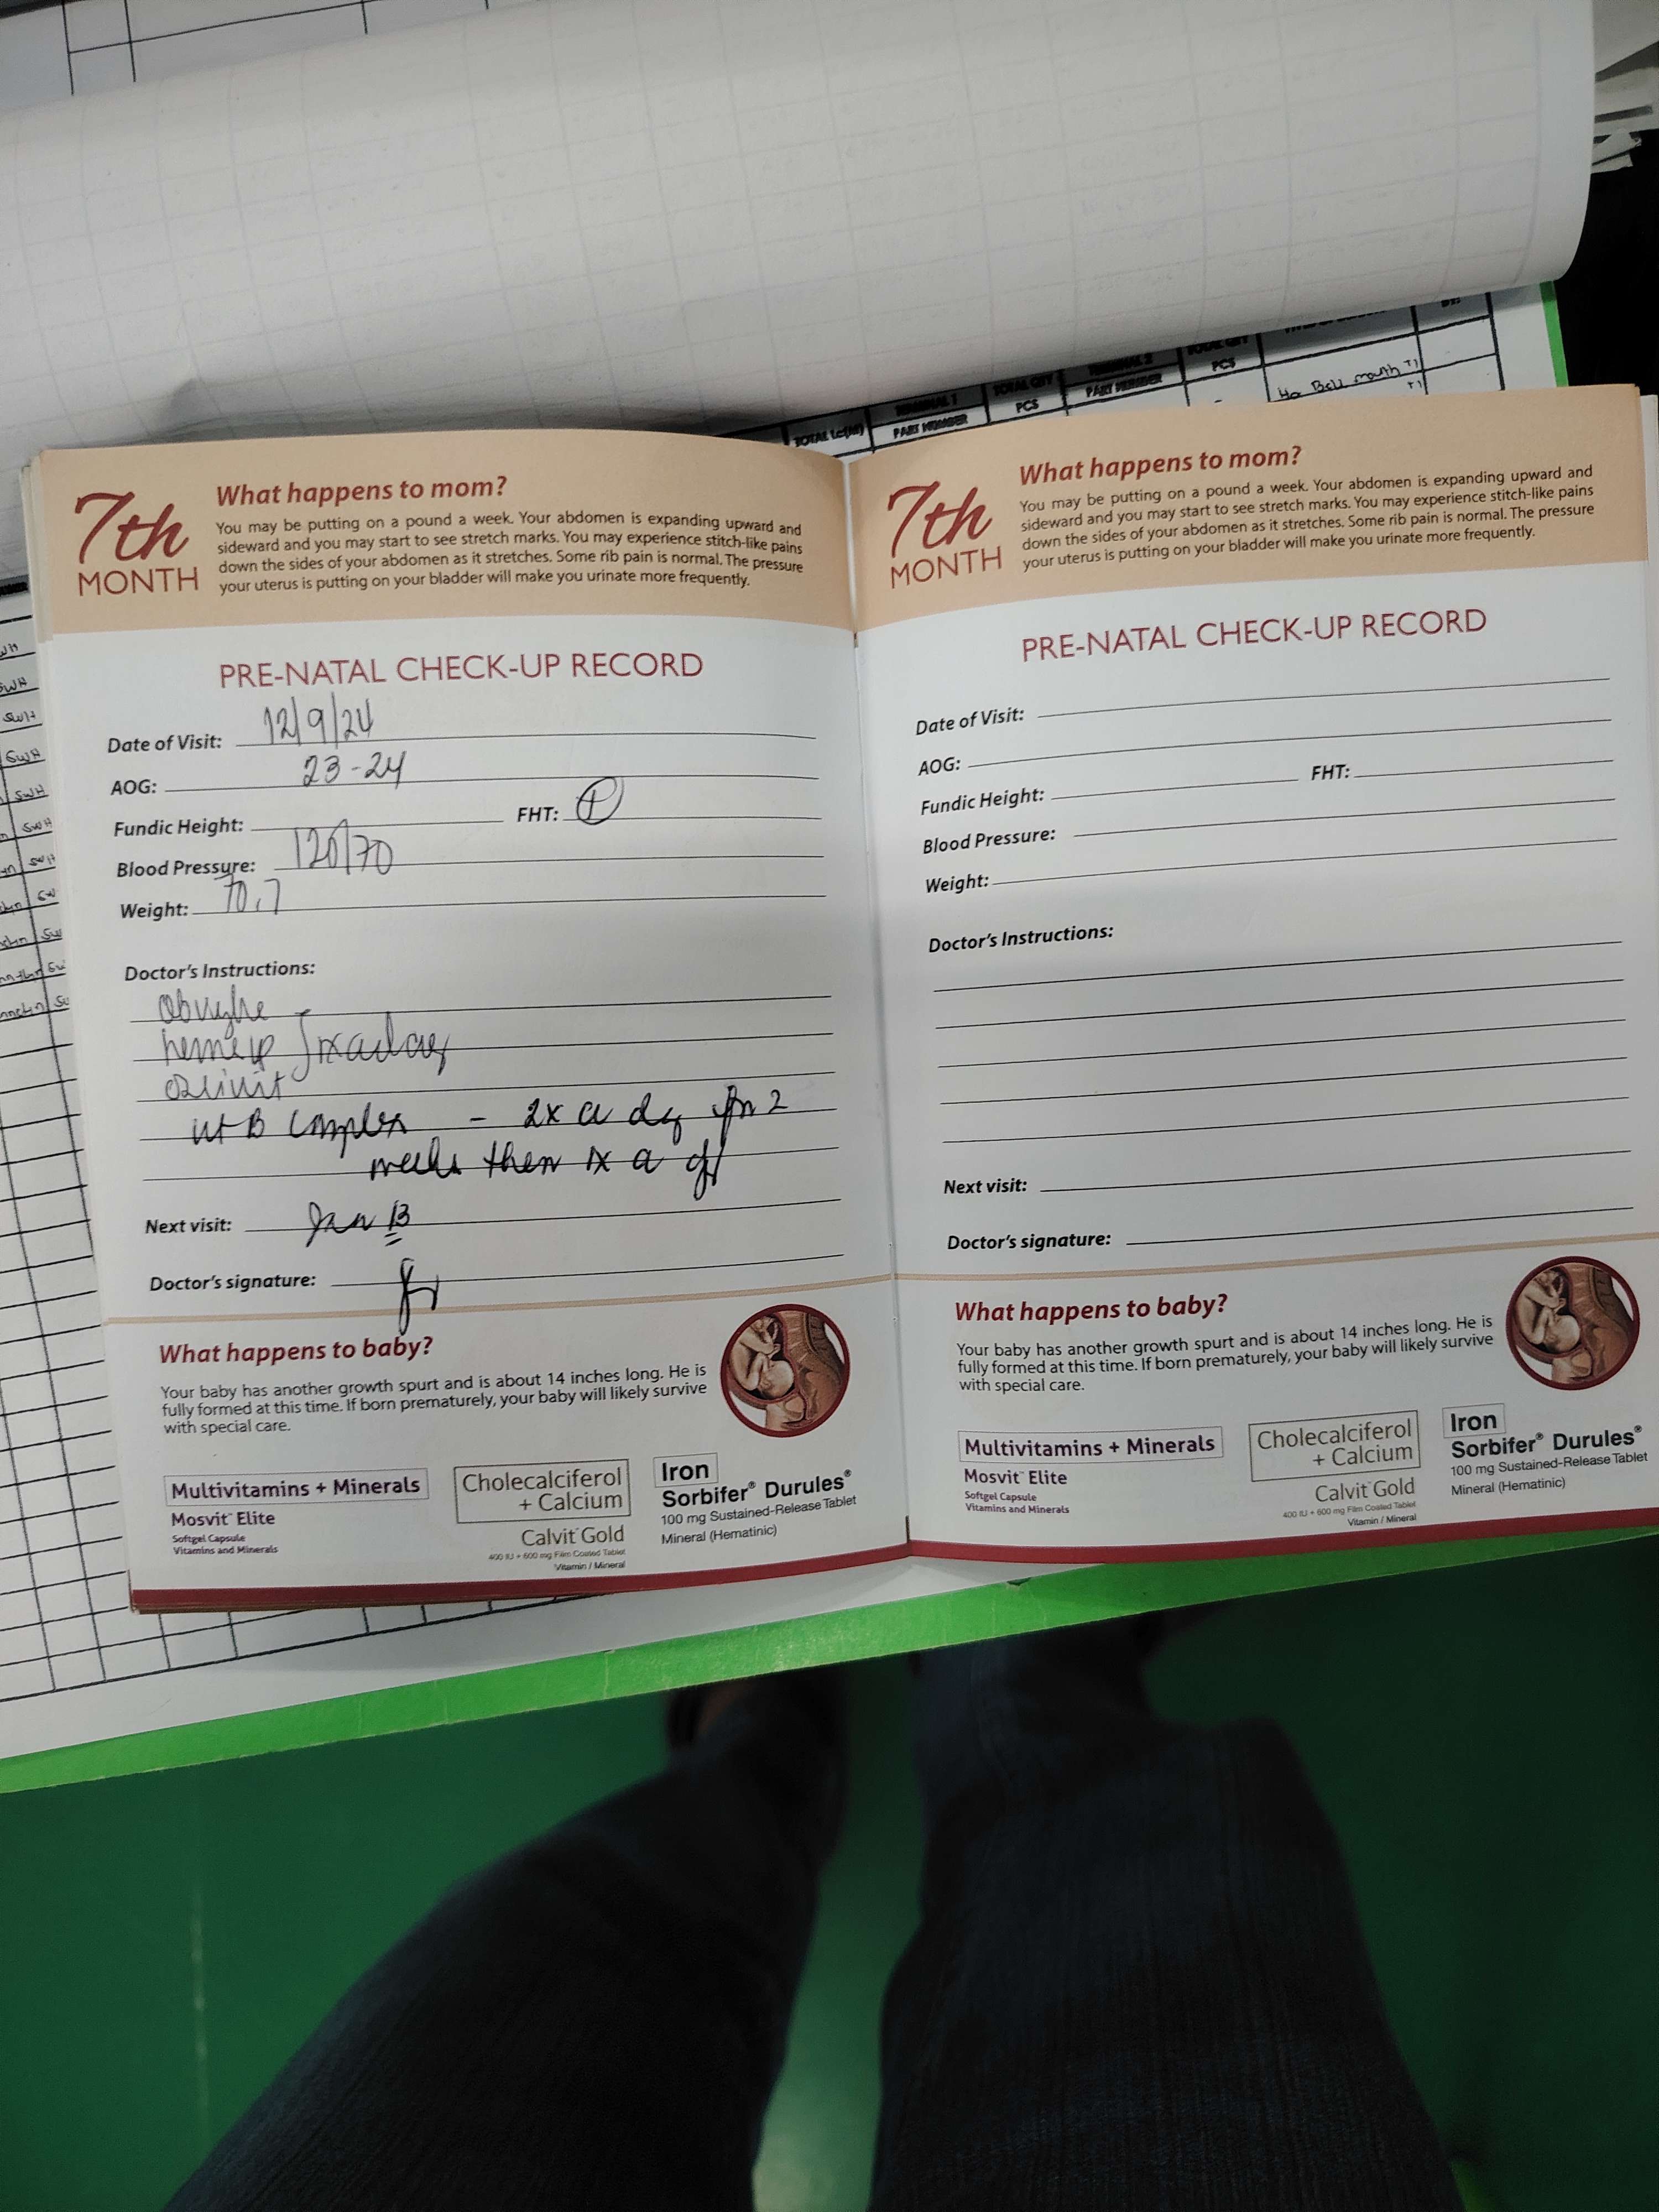 TOTAL QTY
PCS
PART NUMBER
TOTAL QTY
PCS
PART NUMBER
Bell mouth T1
T1
SWA
SWH
SWA
SWH
SWH
SWH
7th
MONTH
What happens to mom?
You may be putting on a pound a week. Your abdomen is expanding upward and
sideward and you may start to see stretch marks. You may experience stitch-like pains
down the sides of your abdomen as it stretches. Some rib pain is normal. The pressure
your uterus is putting on your bladder will make you urinate more frequently.
PRE-NATAL CHECK-UP RECORD
Date of Visit: 12/9/24
AOG: 23-24
Fundic Height: FHT: +
Blood Pressure: 120/70
Weight: 70.7
Doctor's Instructions:
1x a day
vit B complex - 2x a day for 2
weeks then 1x a day
Next visit: Jan 13
Doctor's signature:
What happens to baby?
Your baby has another growth spurt and is about 14 inches long. He is
fully formed at this time. If born prematurely, your baby will likely survive
with special care.
Multivitamins + Minerals
Mosvit™ Elite
Softgel Capsule
Vitamins and Minerals
Cholecalciferol
+ Calcium
Calvit™ Gold
400 IU + 600 mg Film Coated Tablet
Vitamin / Mineral
Iron
Sorbifer® Durules®
100 mg Sustained-Release Tablet
Mineral (Hematinic)
7th
MONTH
What happens to mom?
You may be putting on a pound a week. Your abdomen is expanding upward and
sideward and you may start to see stretch marks. You may experience stitch-like pains
down the sides of your abdomen as it stretches. Some rib pain is normal. The pressure
your uterus is putting on your bladder will make you urinate more frequently.
PRE-NATAL CHECK-UP RECORD
Date of Visit:
AOG:
Fundic Height: FHT:
Blood Pressure:
Weight:
Doctor's Instructions:
Next visit:
Doctor's signature:
What happens to baby?
Your baby has another growth spurt and is about 14 inches long. He is
fully formed at this time. If born prematurely, your baby will likely survive
with special care.
Multivitamins + Minerals
Mosvit™ Elite
Softgel Capsule
Vitamins and Minerals
Cholecalciferol
+ Calcium
Calvit™ Gold
400 IU + 600 mg Film Coated Tablet
Vitamin / Mineral
Iron
Sorbifer® Durules®
100 mg Sustained-Release Tablet
Mineral (Hematinic)